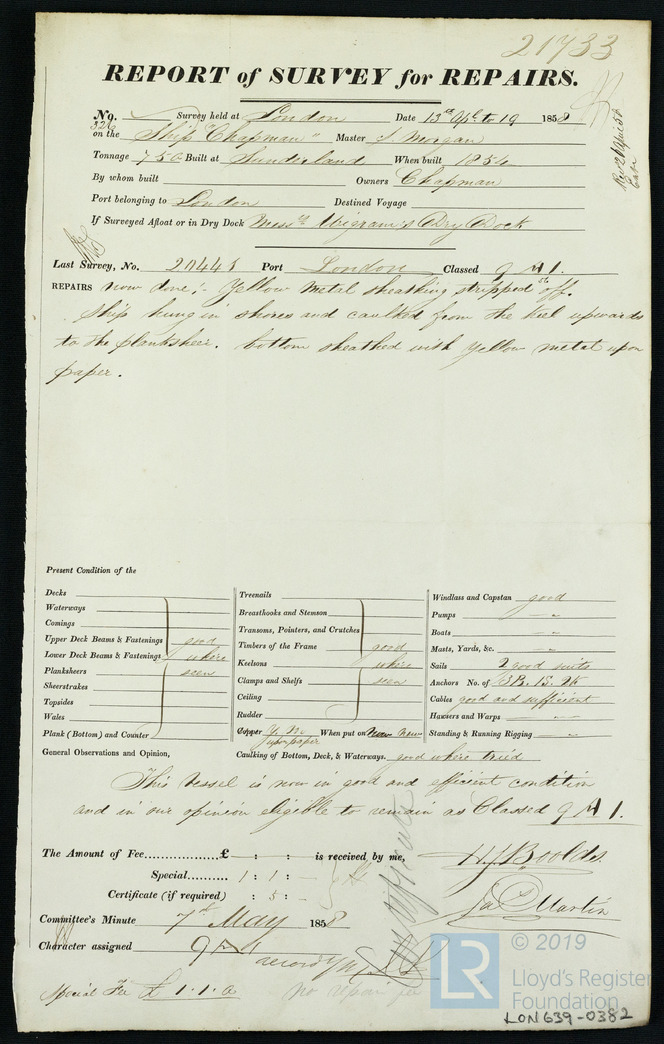 21733
REPORT of SURVEY for REPAIRS.
No. 326 Survey held at London Date 13th Apl to 19 1858
on the Ship "Chapman" Master J. Morgan
Tonnage 750 Built at Sunderland When built 1856
By whom built Owners Chapman
Port belonging to London Destined Voyage
If Surveyed Afloat or in Dry Dock Messrs Wigram's Dry Dock
Last Survey, No. 20448 Port London Classed 9 A 1.
REPAIRS now done;- Yellow Metal sheathing stripped off.
Ship hung in shores and caulked from the keel upwards
to the planksheer. bottom sheathed with yellow metal upon
paper.
Present Condition of the
Decks
Waterways
Comings
Upper Deck Beams & Fastenings good
Lower Deck Beams & Fastenings where
Planksheers seen
Sheerstrakes
Topsides
Wales
Plank (Bottom) and Counter
Treenails
Breasthooks and Stemson
Transoms, Pointers, and Crutches
Timbers of the Frame good
Keelsons where
Clamps and Shelfs seen
Ceiling
Rudder
Copper Y. M. upon paper When put on Now New
Caulking of Bottom, Deck, & Waterways. good where tried
Windlass and Capstan good
Pumps "
Boats "
Masts, Yards, &c. "
Sails 2 good suits
Anchors No. of 3B. 1S. 2K
Cables good and sufficient
Hawsers and Warps "
Standing & Running Rigging "
General Observations and Opinion,
This Vessel is now in good and efficient condition
and in our opinion eligible to remain as Classed 9 A 1.
The Amount of Fee................£ : : is received by me,
Special........ 1 : 1 : -
Certificate (if required) : 5 : -
H J Boolds
Jas Martin
Committee's Minute 7th May 1858
Character assigned 9 A 1
Special Fee £ 1.1.0
no repair fee
LR
© 2019
Lloyd's Register
Foundation
LON639-0382